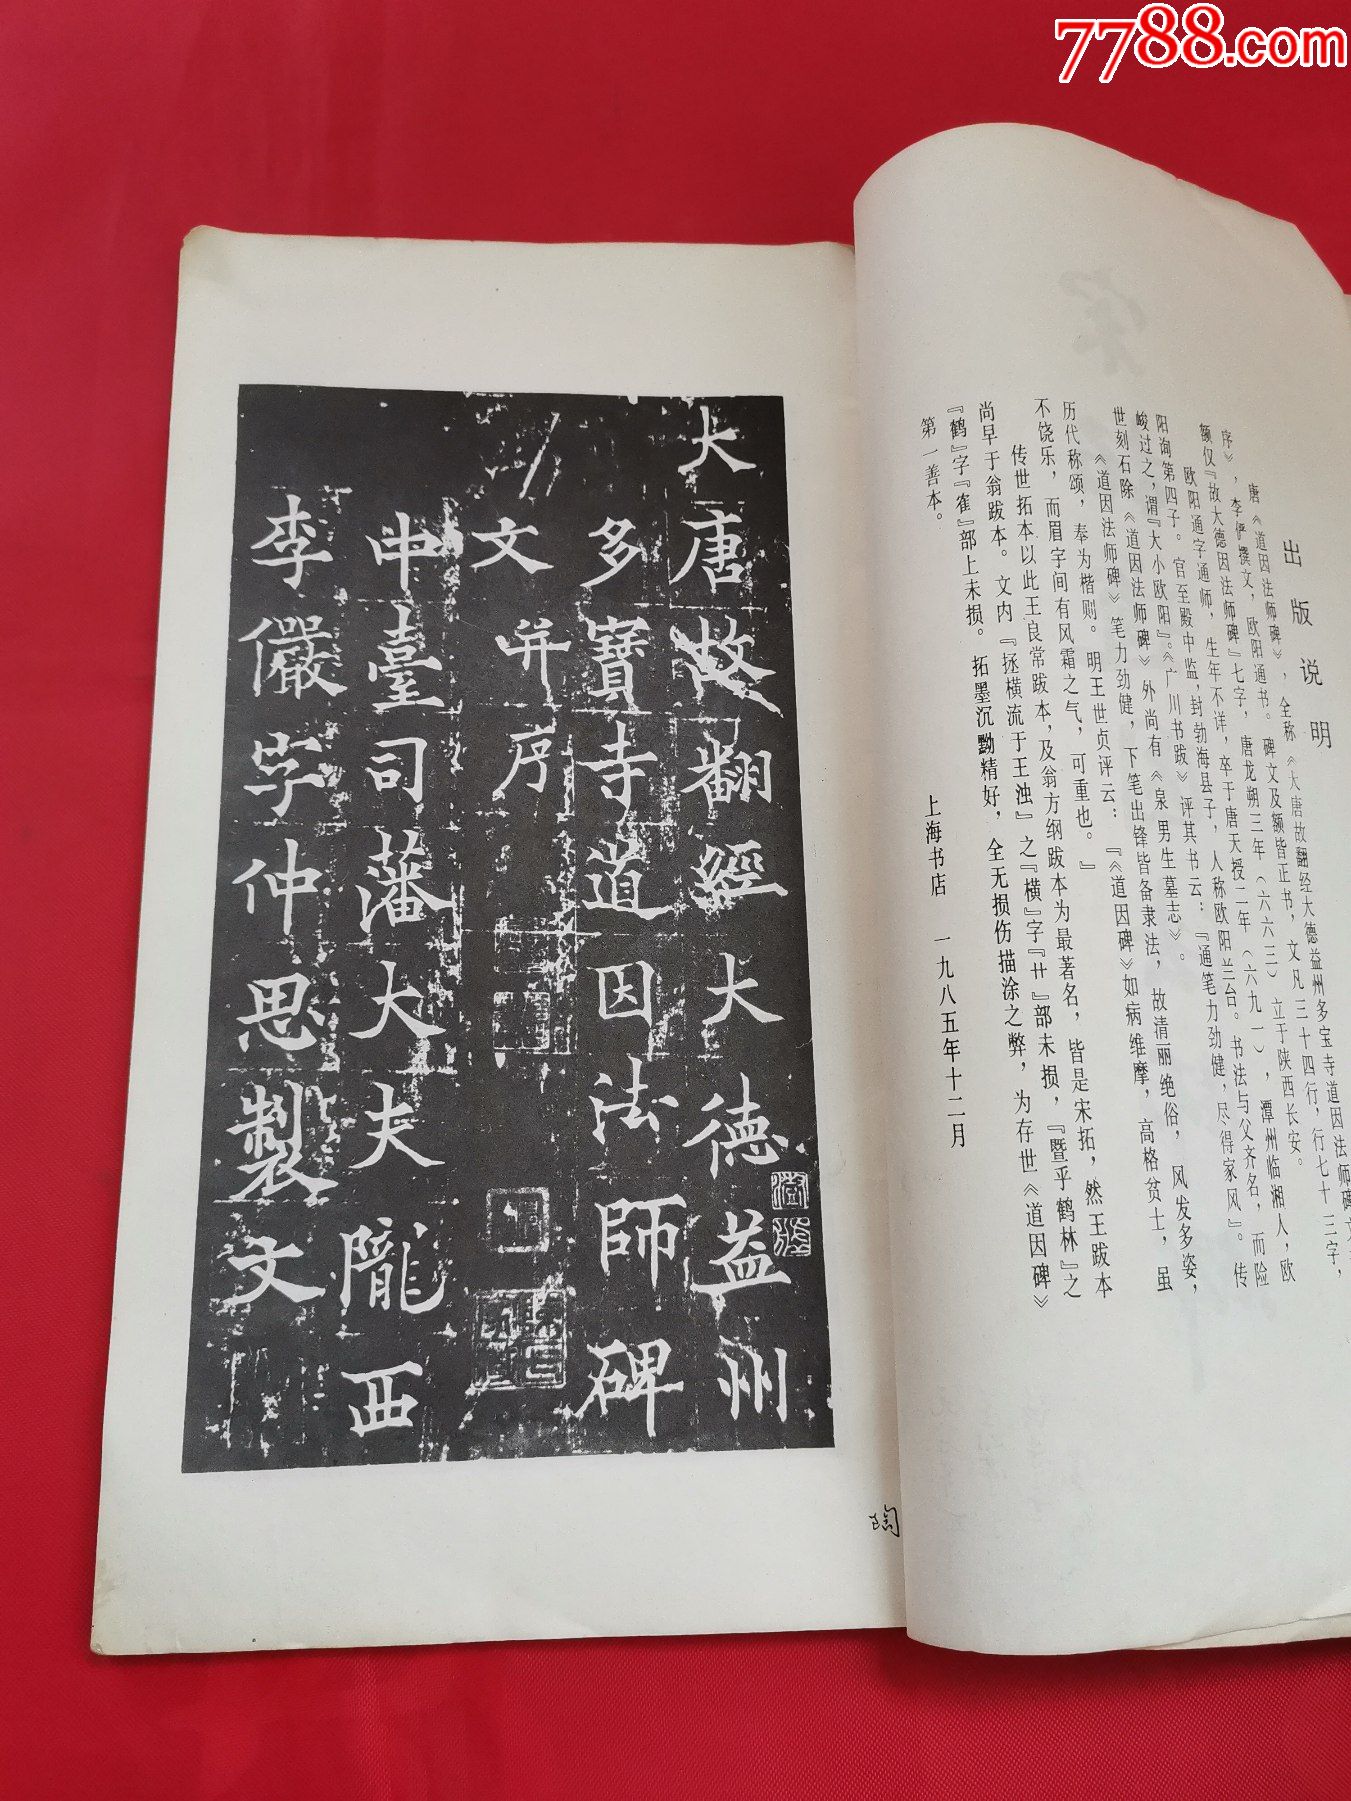 7788.com印章
出版说明
唐《道因法师碑》，全称《大唐故翻经大德益州多宝寺道因法师碑文
序》，李俨撰文，欧阳通书。碑文及额皆正书，文凡三十四行，行七十三字，
额仅『故大德因法师碑』七字，唐龙朔三年（六六三）立于陕西长安。
欧阳通字通师，生年不详，卒于唐天授二年（六九一），潭州临湘人，欧
阳询第四子。官至殿中监，封勃海县子，人称欧阳兰台。书法与父齐名，而险
峻过之，谓『大小欧阳』。《广川书跋》评其书云：『通笔力劲健，尽得家风』。传
世刻石除《道因法师碑》外尚有《泉男生墓志》。
《道因法师碑》笔力劲健，下笔出锋皆备隶法，故清丽绝俗，风发多姿，
历代称颂，奉为楷则。明王世贞评云：『《道因碑》如病维摩，高格贫士，虽
不饶乐，而眉宇间有风霜之气，可重也。』
传世拓本以此王良常跋本，及翁方纲跋本为最著名，皆是宋拓，然王跋本
尚早于翁跋本。文内『拯横流于王浊』之『横』字『艹』部未损，『暨乎鹤林』之
『鹤』字『隺』部上未损。拓墨沉黝精好，全无损伤描涂之弊，为存世《道因碑》
第一善本。
上海书店 一九八五年十二月
大唐故翻經大德益州
多寶寺道因法師碑
文并序
中臺司藩大夫隴西
李儼字仲思製文